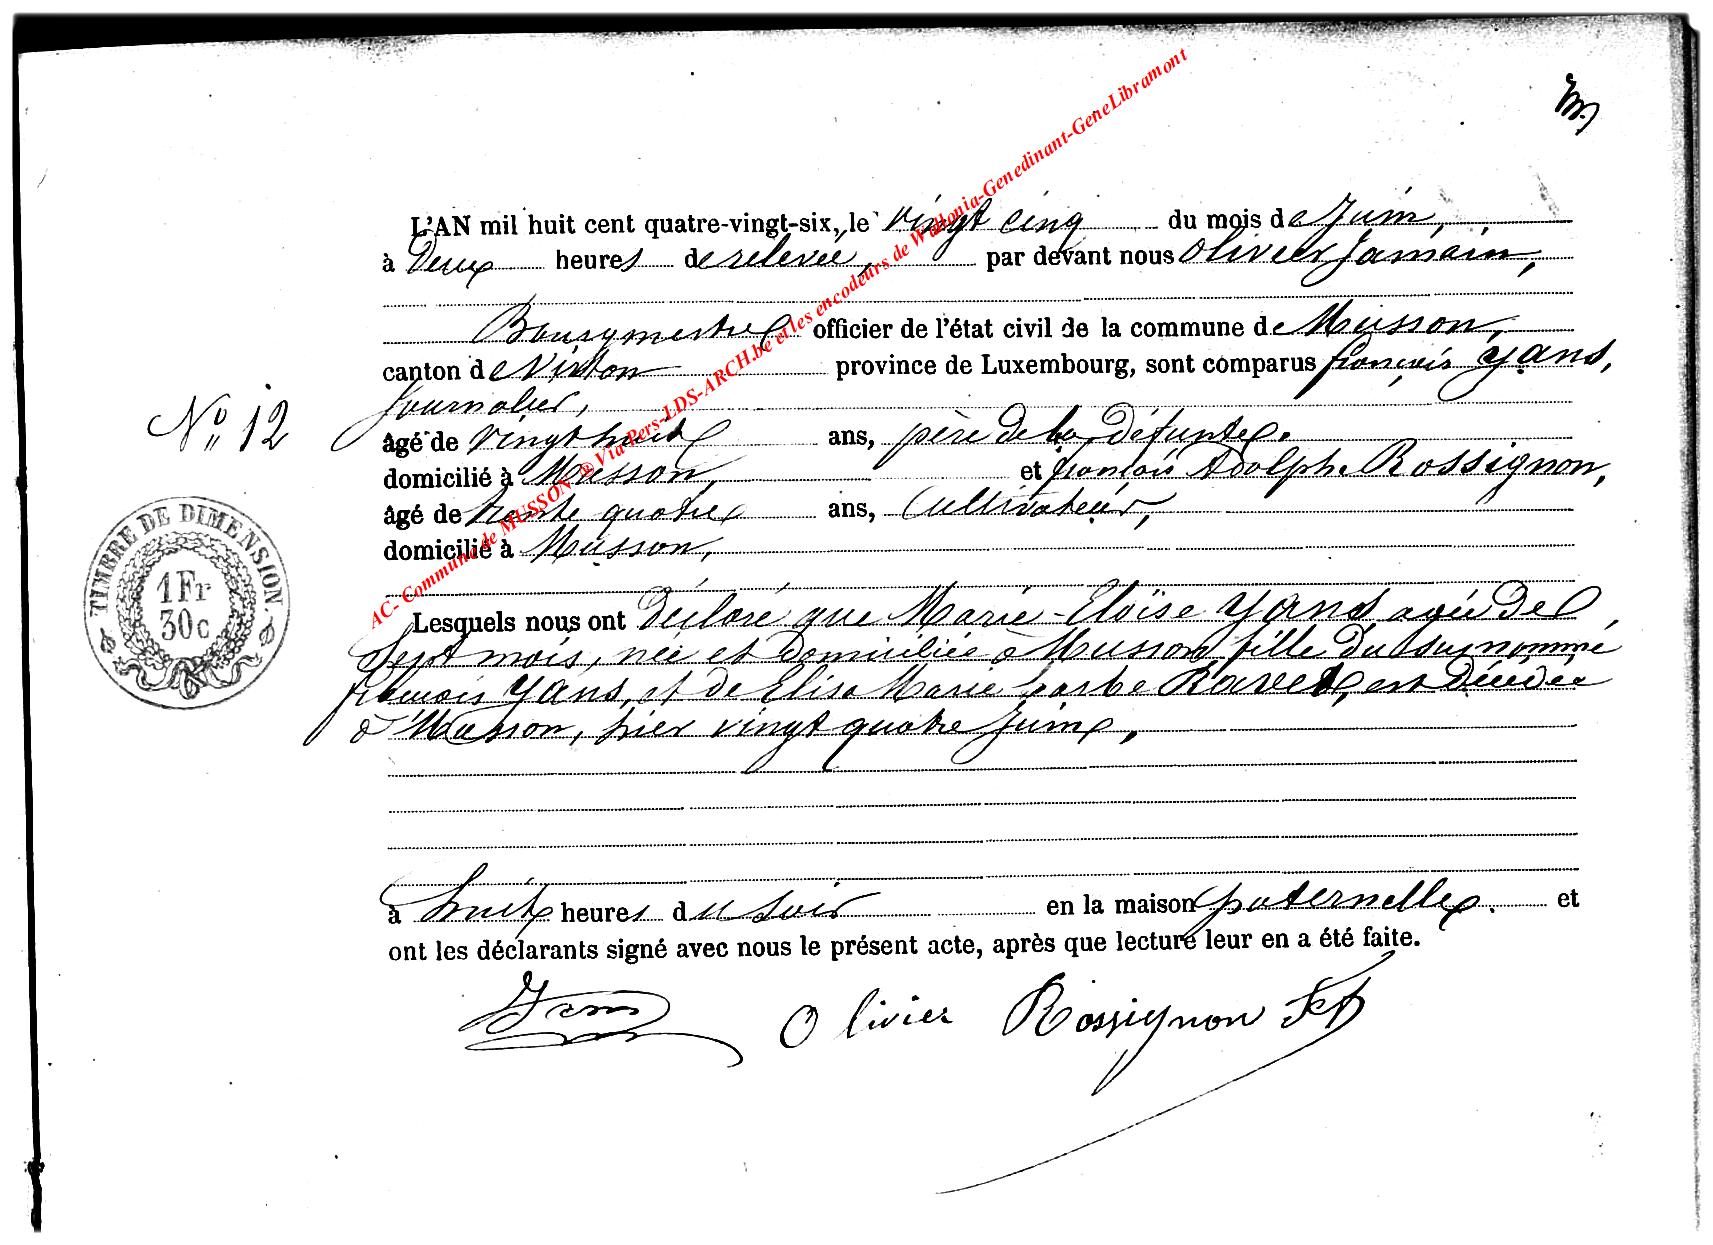 AC- Commune de MUSSON ® Via Pers-LDS-ARCH.be et les encodeurs de Wallonia-Genedinant-GeneLibramont
L'AN mil huit cent quatre-vingt-six, le vingt cinq du mois de Juin,
à Deux heures de relevée, par devant nous Olivier Jamain,
Bourgmestre officier de l'état civil de la commune de Musson,
canton de Virton province de Luxembourg, sont comparus françois Yans,
Journalier,
No 12
âgé de vingt huit ans, père de la défunte.
domicilié à Musson, et françois Adolphe Rossignon,
âgé de trente quatre ans, Cultivateur,
domicilié à Musson,
TIMBRE DE DIMENSION
1 Fr
30 c
Lesquels nous ont déclaré que Marie-Eloïse Yans agée de
Sept mois, née et domiciliée à Musson, fille du surnommé
françois Yans, et de Elisa Marie barbe Ravet, est décédée
à Musson, hier vingt quatre Juin,
à huit heures du soir en la maison paternelle. et
ont les déclarants signé avec nous le présent acte, après que lecture leur en a été faite.
Olivier Rossignon